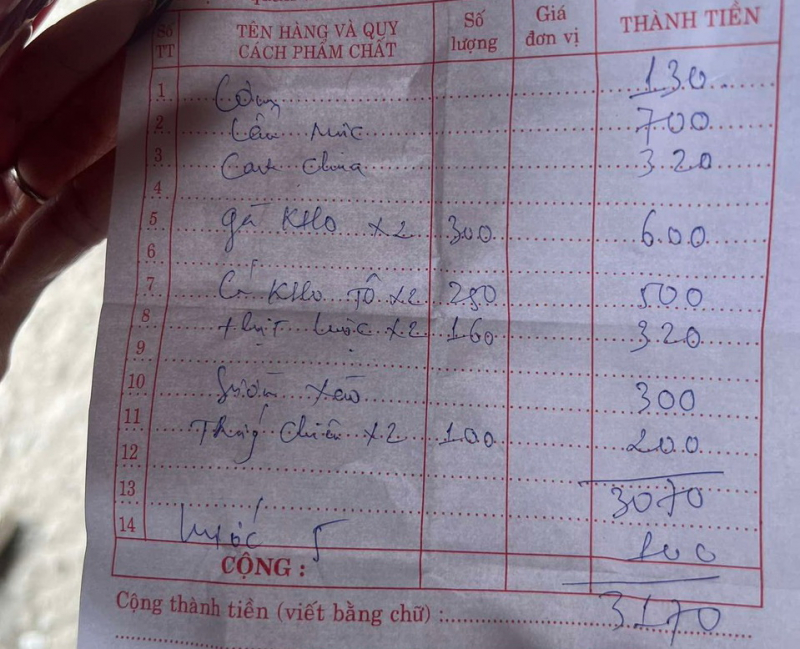 Số TT TÊN HÀNG VÀ QUY CÁCH PHẨM CHẤT Số lượng Giá đơn vị THÀNH TIỀN
1 Cơm 130
2 Lẩu mực 700
3 Canh chua 320
4
5 gà KHo x2 300 600
6
7 Cá KHo TỘ x2 250 500
8 thịt luộc x2 160 320
9
10 Sườn xào 300
11 Trứng chiên x2 100 200
12
13 3070
14 Nước 5 100
CỘNG :
Cộng thành tiền (viết bằng chữ) : 3170